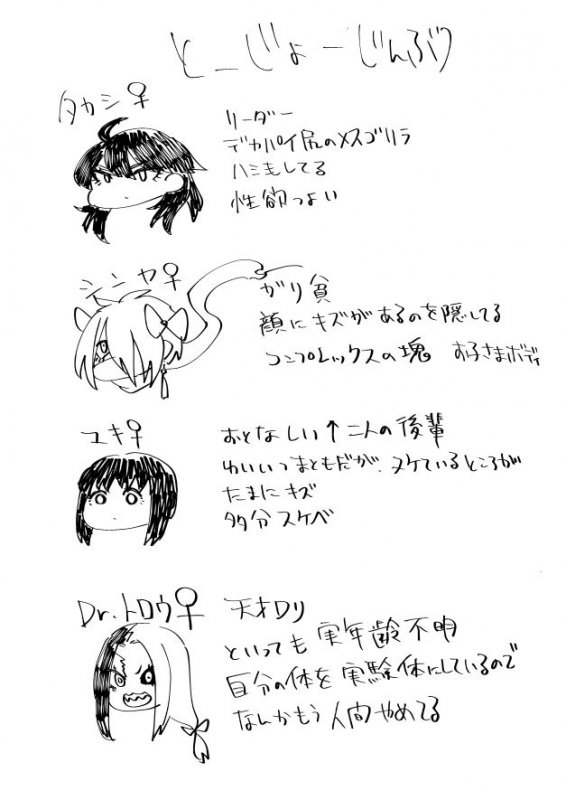 とーじょーじんぶつ
タカシ♀
リーダー
デカパイ尻のメスゴリラ
ハミ毛してる
性欲つよい
シンヤ♀
がり貧
顔にキズがあるのを隠してる
コンプレックスの塊 お子さまボディ
ユキ♀
おとなしい↑二人の後輩
ゆいいつまともだが、ヌケているところが
たまにキズ
多分スケベ
Dr.トロウ♀
天才ロリ
といっても実年齢不明
自分の体を実験体にしているので
なんかもう人間やめてる